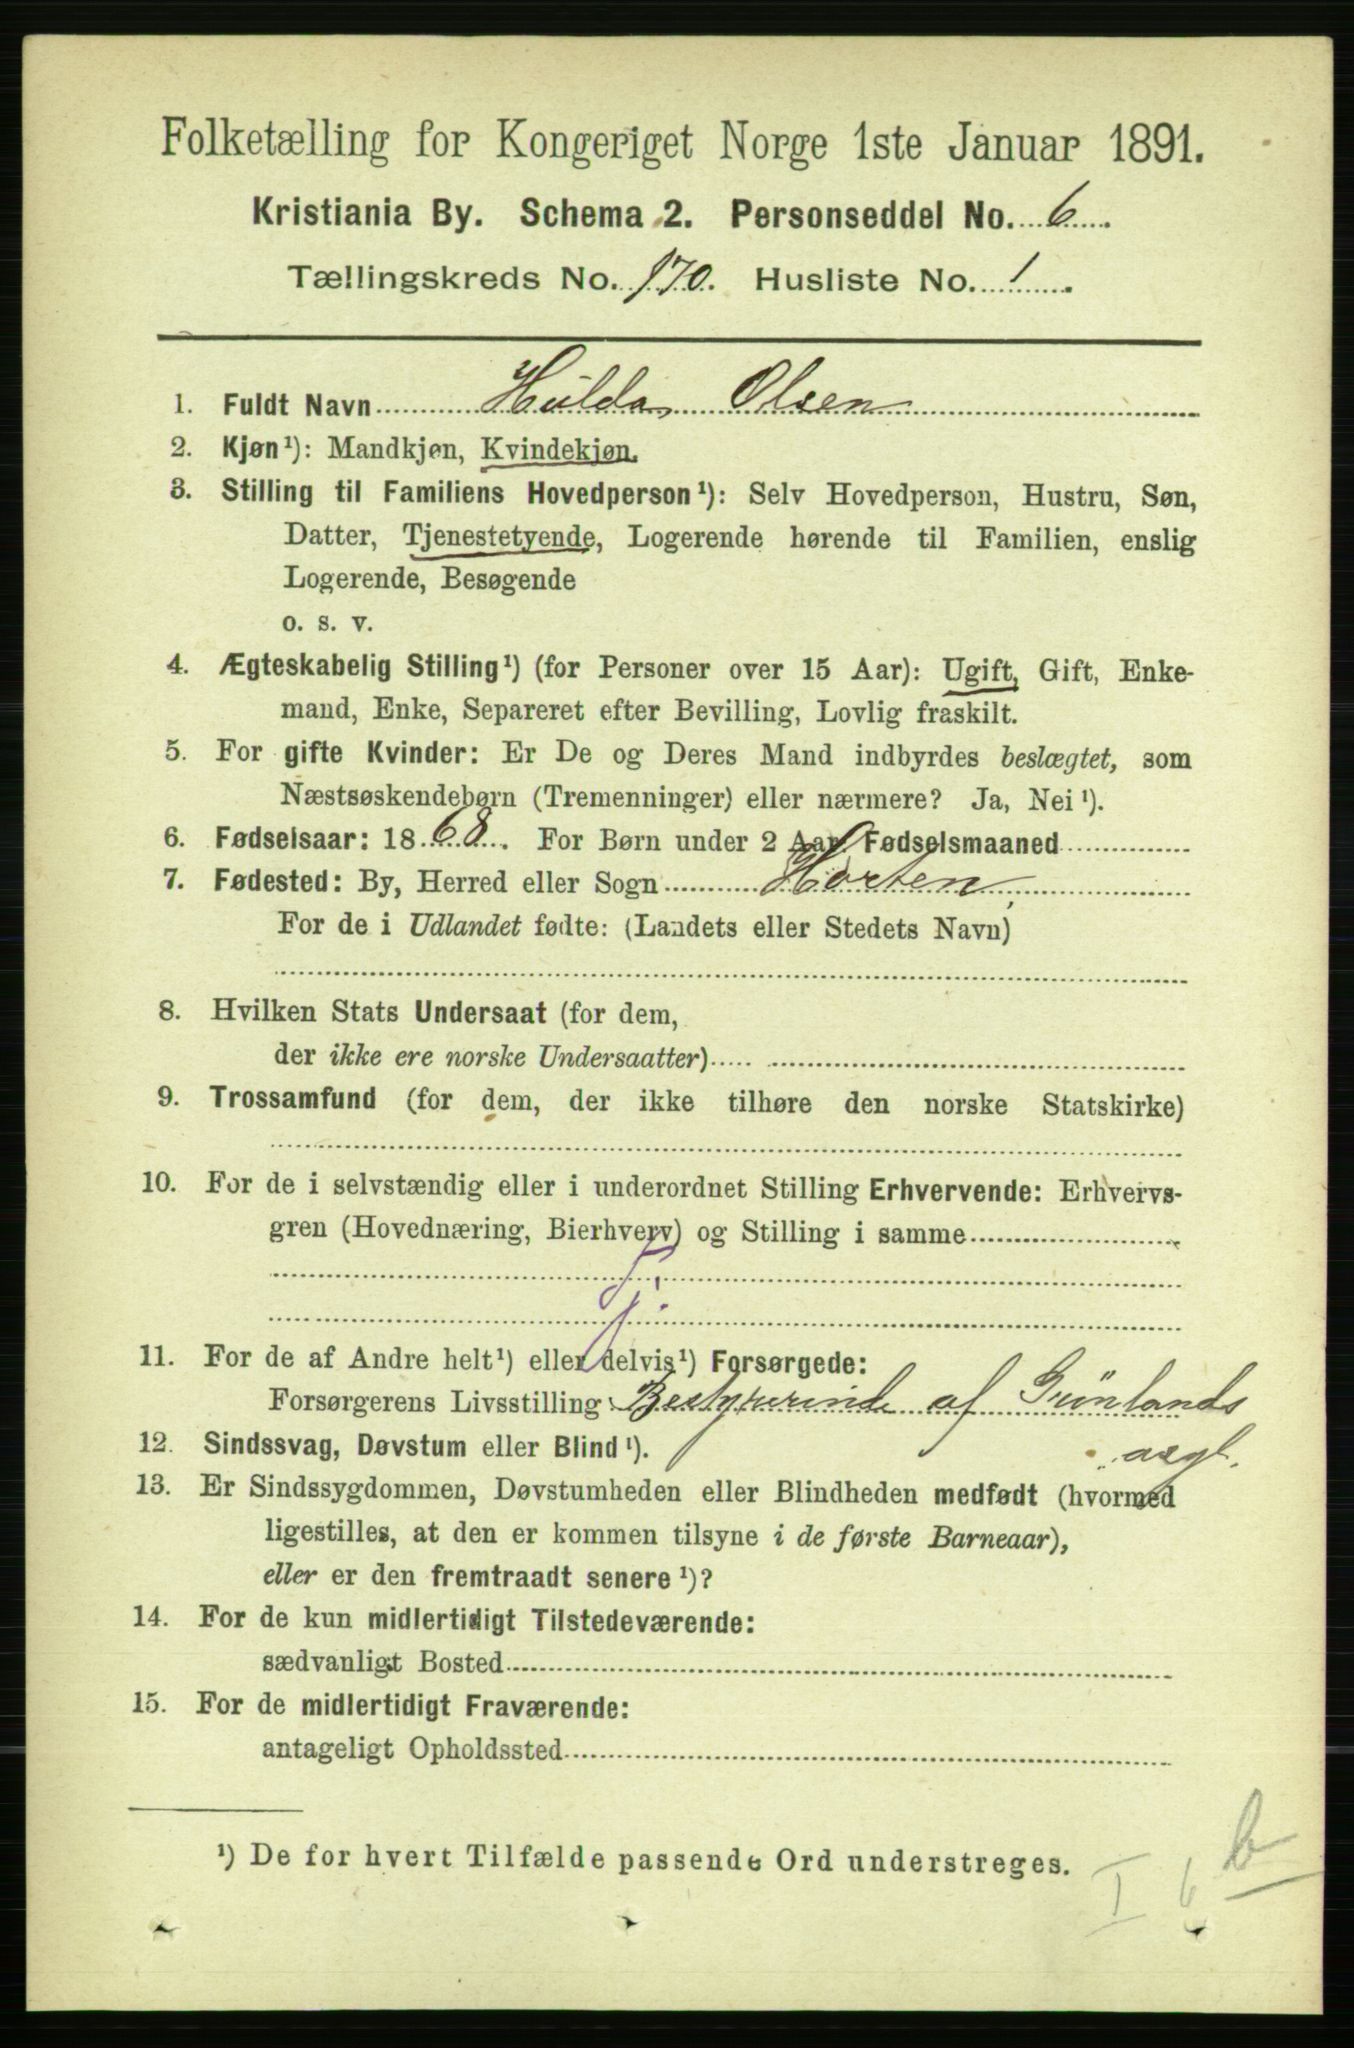 Folketælling for Kongeriget Norge 1ste Januar 1891.
Kristiania By. Schema 2. Personseddel No. 6
Tællingskreds No. 170. Husliste No. 1
1. Fuldt Navn Hulda Olsen
2. Kjøn¹): Mandkjøn, Kvindekjøn.
3. Stilling til Familiens Hovedperson¹): Selv Hovedperson, Hustru, Søn,
Datter, Tjenestetyende, Logerende hørende til Familien, enslig
Logerende, Besøgende
o. s. v.
4. Ægteskabelig Stilling¹) (for Personer over 15 Aar): Ugift, Gift, Enke-
mand, Enke, Separeret efter Bevilling, Lovlig fraskilt.
5. For gifte Kvinder: Er De og Deres Mand indbyrdes beslægtet, som
Næstsøskendebørn (Tremenninger) eller nærmere? Ja, Nei¹).
6. Fødselsaar: 1868. For Børn under 2 Aar: Fødselsmaaned
7. Fødested: By, Herred eller Sogn Horten
For de i Udlandet fødte: (Landets eller Stedets Navn)
8. Hvilken Stats Undersaat (for dem,
der ikke ere norske Undersaatter)
9. Trossamfund (for dem, der ikke tilhøre den norske Statskirke)
10. For de i selvstændig eller i underordnet Stilling Erhvervende: Erhvervs-
gren (Hovednæring, Bierhverv) og Stilling i samme
11. For de af Andre helt¹) eller delvis¹) Forsørgede:
Forsørgerens Livsstilling Bestyrerinde af Grünlands
asyl.
12. Sindssvag, Døvstum eller Blind¹).
13. Er Sindssygdommen, Døvstumheden eller Blindheden medfødt (hvormed
ligestilles, at den er kommen tilsyne i de første Barneaar),
eller er den fremtraadt senere¹)?
14. For de kun midlertidigt Tilstedeværende:
sædvanligt Bosted
15. For de midlertidigt Fraværende:
antageligt Opholdssted
¹) De for hvert Tilfælde passende Ord understreges.
I 6 b